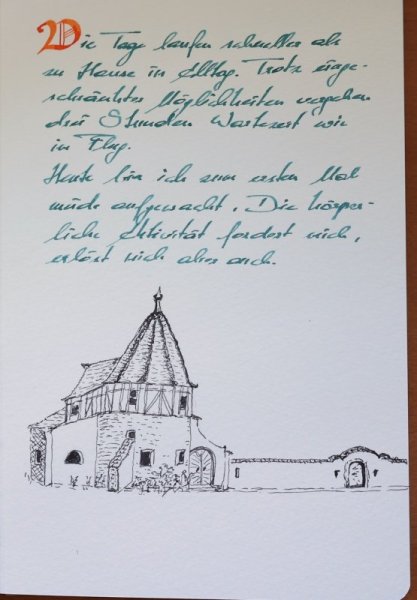 Die Tage laufen schneller als
zu Hause im Alltag. Trotz einge-
schränkter Möglichkeiten vergehen
drei Stunden Wartezeit wie
im Flug.
Heute bin ich zum ersten Mal
müde aufgewacht. Die körper-
liche Aktivität fordert mich,
erlöst mich aber auch.